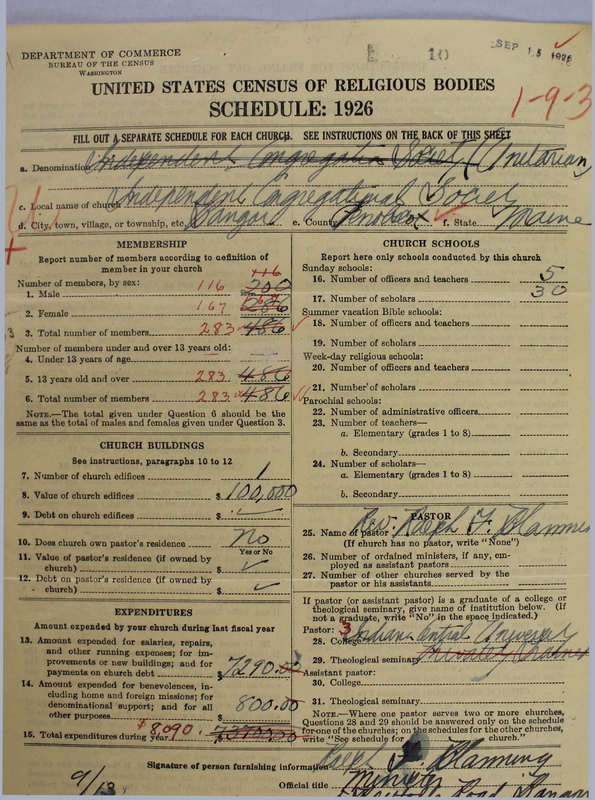 DEPARTMENT OF COMMERCE
BUREAU OF THE CENSUS
WASHINGTON
E 10 SEP 15 1926
UNITED STATES CENSUS OF RELIGIOUS BODIES
SCHEDULE: 1926
1-9-3
FILL OUT A SEPARATE SCHEDULE FOR EACH CHURCH. SEE INSTRUCTIONS ON THE BACK OF THIS SHEET
a. Denomination Independent Congregation Society (Unitarian)
c. Local name of church Independent Congregational Society
d. City, town, village, or township, etc. Bangor e. County Penobscot f. State Maine
MEMBERSHIP
Report number of members according to definition of member in your church
Number of members, by sex: 116
1. Male 116 200
2. Female 167 286
3. Total number of members 283 486
Number of members under and over 13 years old:
4. Under 13 years of age
5. 13 years old and over 283 486
6. Total number of members 283 486
NOTE.—The total given under Question 6 should be
same as the total of males and females given under Question 3.
CHURCH BUILDINGS
See instructions, paragraphs 10 to 12
7. Number of church edifices 1
8. Value of church edifices $ 100,000
9. Debt on church edifices $
10. Does church own pastor's residence No
Yes or No
11. Value of pastor's residence (if owned by
church) $
12. Debt on pastor's residence (if owned by
church) $
EXPENDITURES
Amount expended by your church during last fiscal year
13. Amount expended for salaries, repairs,
and other running expenses; for im-
provements or new buildings; and for
payments on church debt $ 7290.00
14. Amount expended for benevolences, in-
cluding home and foreign missions; for
denominational support; and for all
other purposes $ 800.00
15. Total expenditures during year $8,090.
CHURCH SCHOOLS
Report here only schools conducted by this church
Sunday schools:
16. Number of officers and teachers 5
17. Number of scholars 30
Summer vacation Bible schools:
18. Number of officers and teachers
19. Number of scholars
Week-day religious schools:
20. Number of officers and teachers
21. Number of scholars
Parochial schools:
22. Number of administrative officers
23. Number of teachers—
a. Elementary (grades 1 to 8)
b. Secondary
24. Number of scholars—
a. Elementary (grades 1 to 8)
b. Secondary
PASTOR
25. Name of pastor Rev. Ralph F. Blanning
(If church has no pastor, write "None")
26. Number of ordained ministers, if any, em-
ployed as assistant pastors
27. Number of other churches served by the
pastor or his assistants
If pastor (or assistant pastor) is a graduate of a college or
theological seminary, give name of institution below. (If
not a graduate, write "No" in the space indicated.)
Pastor: 3
28. College Indiana Central University
29. Theological seminary
Assistant pastor:
30. College
31. Theological seminary
NOTE.—Where one pastor serves two or more churches,
Questions 28 and 29 should be answered only on the schedule
for one of the churches; on the schedules for the other churches,
write "See schedule for church."
Signature of person furnishing information Ralph F. Blanning
9/13 Official title Minister